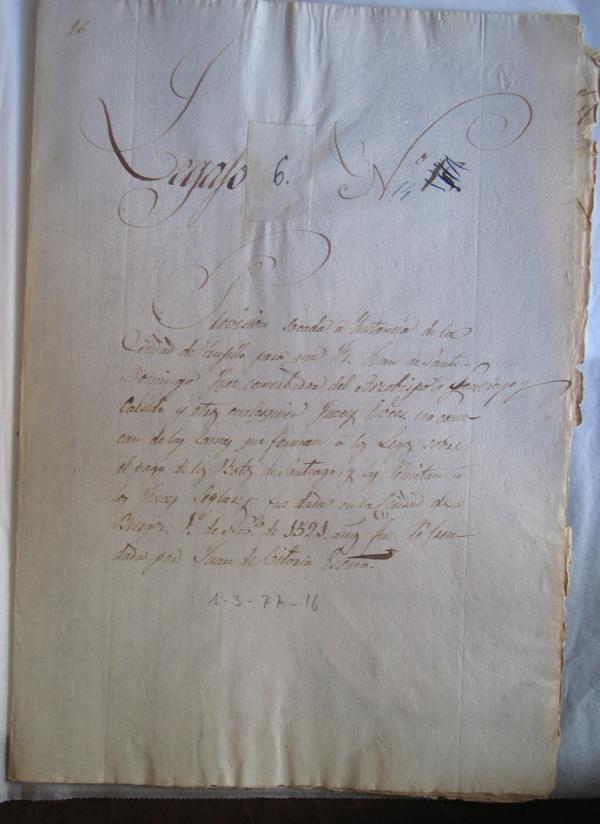 16
Legajo 6. N.o 14
Provision sacada á Instancia de la
Ciudad de Trujillo para que Fr. Juan de Santo
Domingo Juez conserbador del Arzobispo
Cabildo y otros qualesquiera Jueces no conoz-
can de las causas que forman a los Legos sobre
el pago de los Botos de Santiago, y las Remitan á
los Jueces Seglares: fue dada en la Ciudad de
Burgos 1.o de Nov.bre de 1521. años fue Refren-
dada por Juan de Vitoria Escno.
1-3-77-16